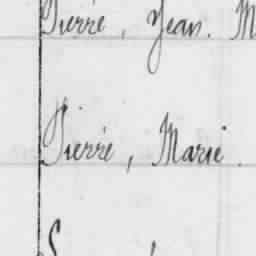 Pierre, Jean. M
Pierre, Marie.